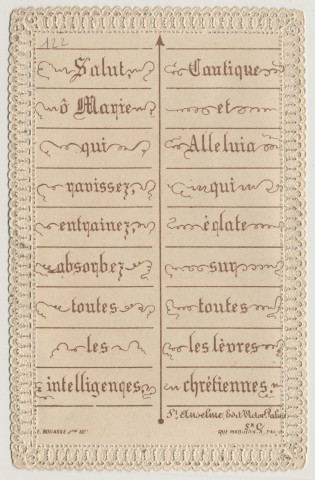 122
Salut
ô Marie
qui
ravissez
entrainez
absorbez
toutes
les
intelligences
Cantique
et
Alleluia
qui
éclate
sur
toutes
les lèvres
chrétiennes
St. Anselme Edit. Victor Palmé